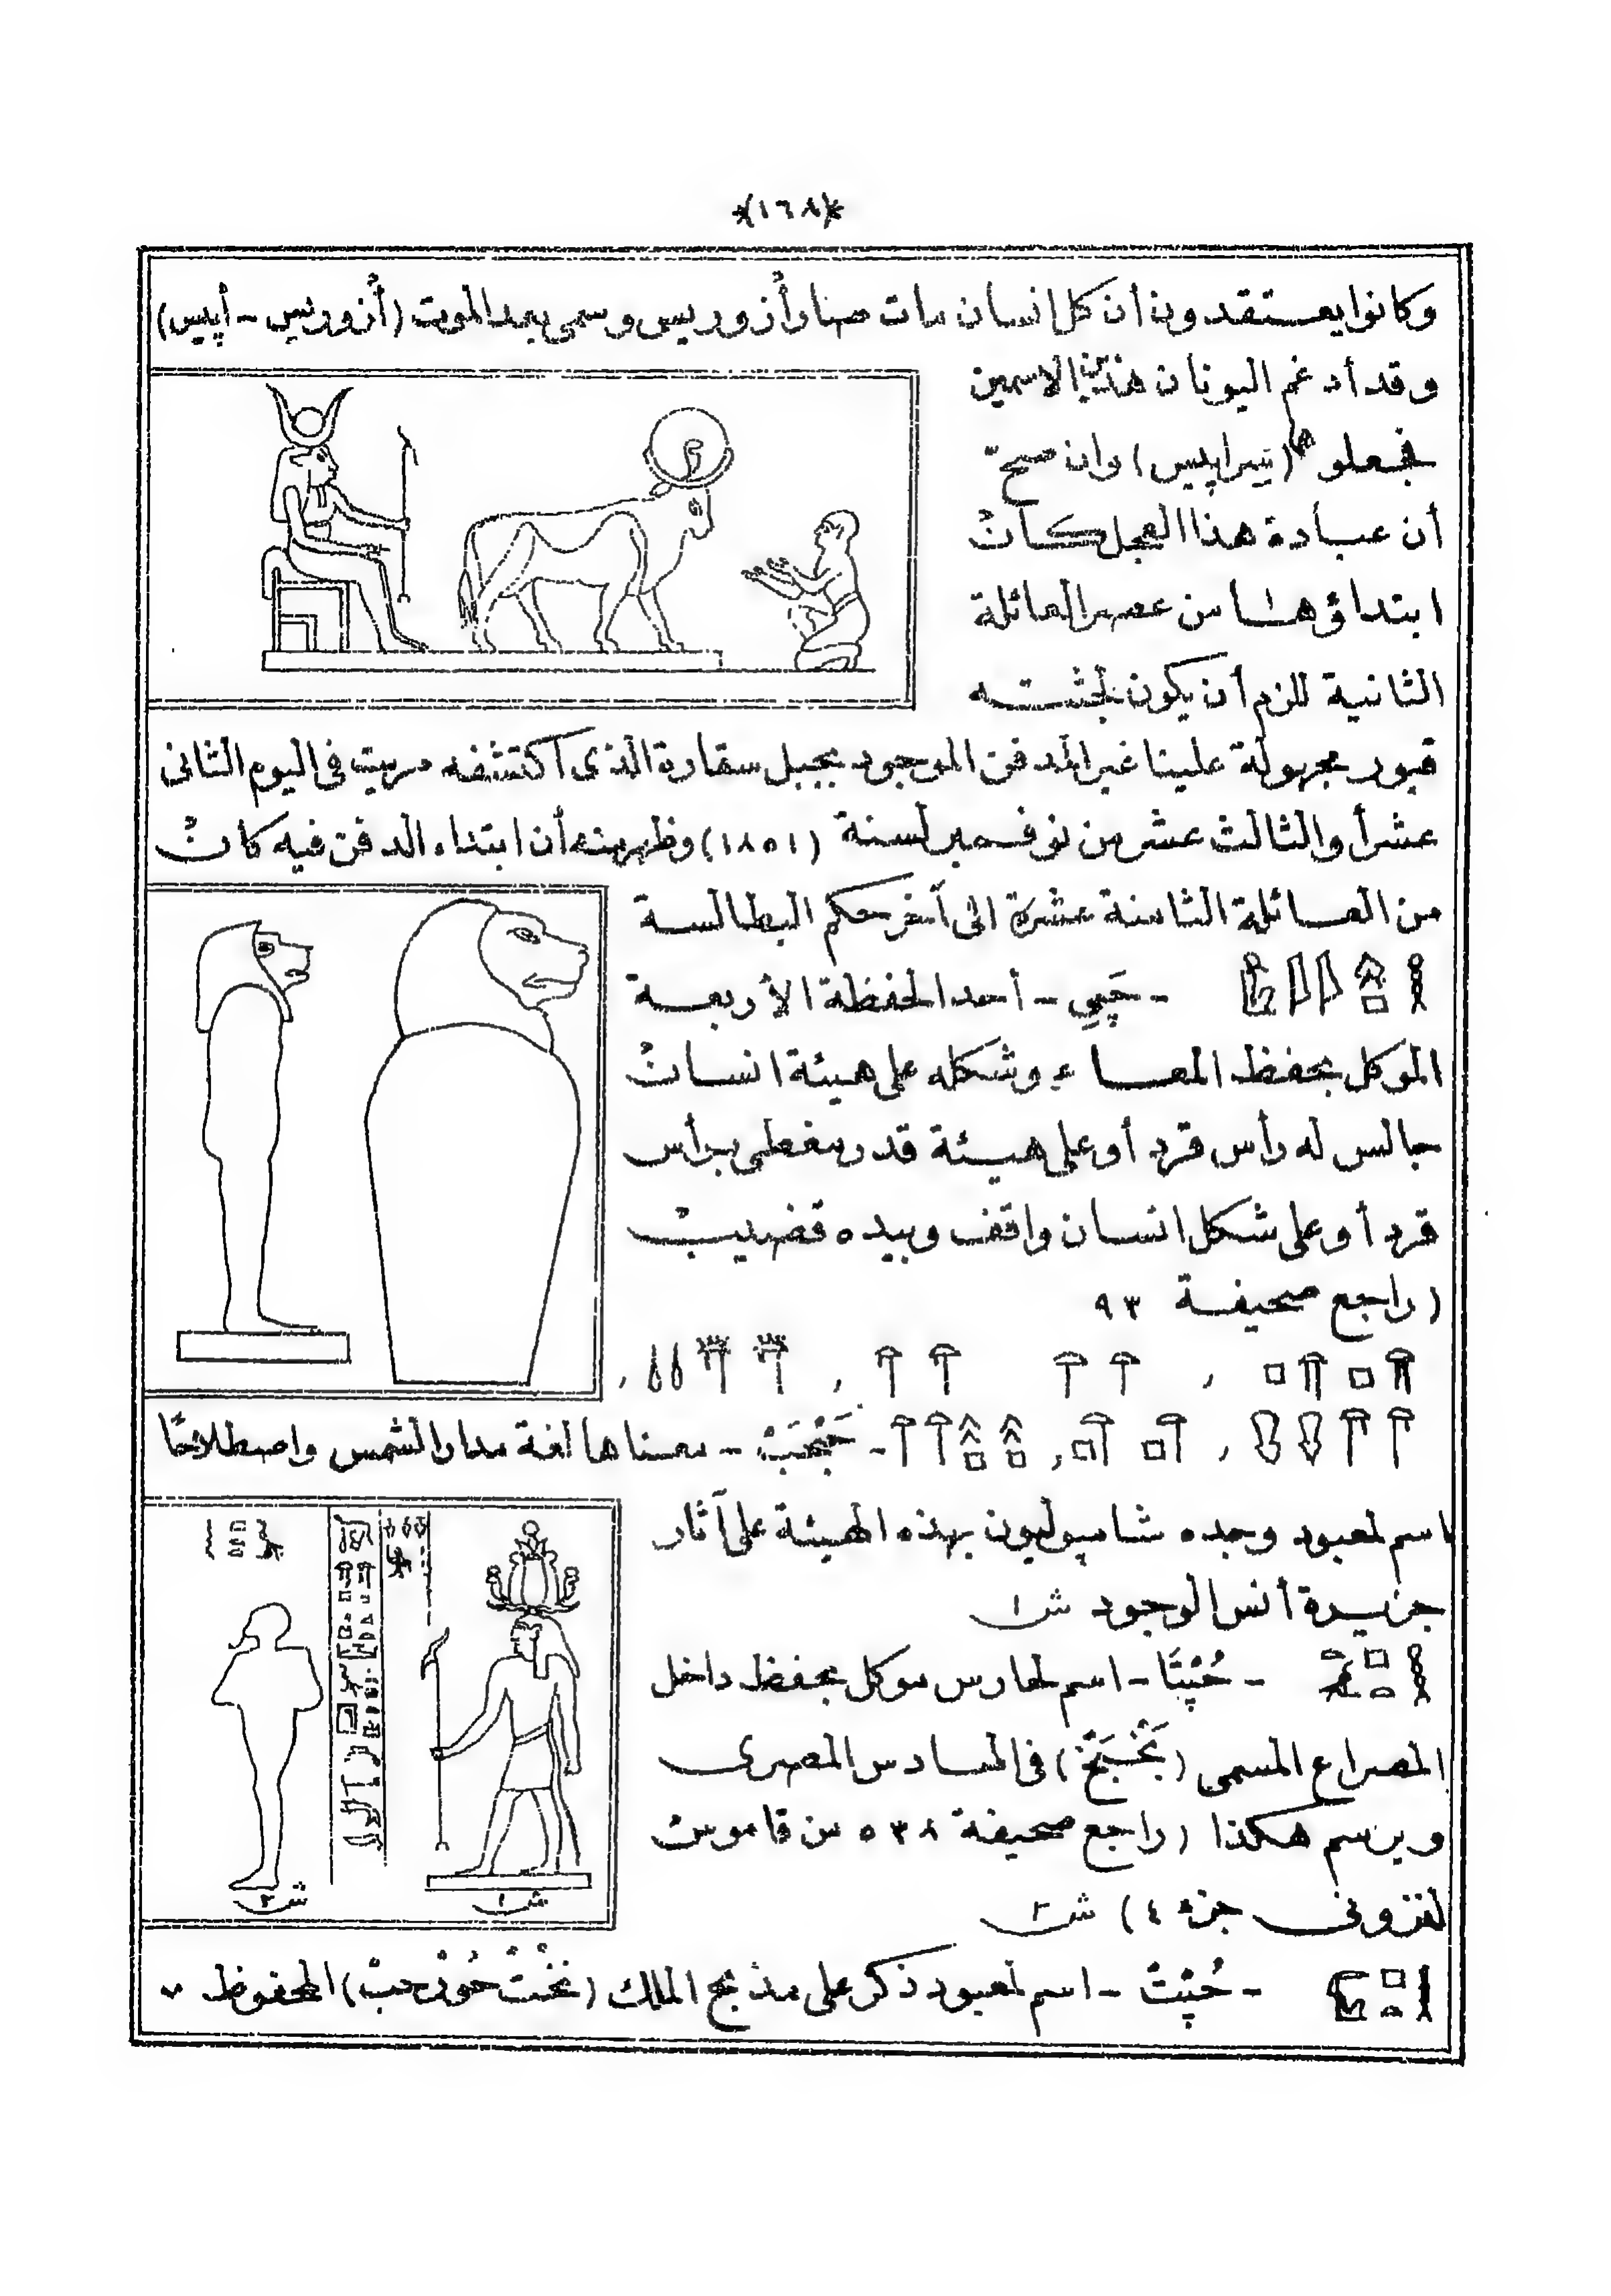 *(١٦٨)*
وكانوا يعتقدون أن كل انسان مات صار أُزوريس وسمى بعد الموت (أُزوريس - أپيس)
وقد أدغم اليونان هذين الاسمين
فجعلوهما (سيراپيس) وان صحّ
أن عبادة هذا العجل كان
ابتداؤها من عصر العائلة
الثانية للزم أن يكون لجثته
قبور مجهولة علينا غير المدفن الموجود بجبل سقارة الذى اكتشفه مريت فى اليوم الثانى
عشر أو الثالث عشر من نوفمبر لسنة (١٨٥١) وظهر منه أن ابتداء الدفن فيه كان
من العائلة الثامنة عشرة الى آخر حكم البطالسة
- حَپِي - أحد الحفظة الأربعة
الموكل بحفظ المعاء وشكله على هيئة انسان
جالس له رأس قرد أو على هيئة قدر مغطى برأس
قرد أو على شكل انسان واقف وبيده قضيب
(راجع صحيفة ٩٣
- حَبْحَبْ - معناها لغة مدار الشمس واصطلاحًا
اسم لمعبود وجده شامپوليون بهذه الهيئة على آثار
جزيرة أنس الوجود ش ١
- حُپْتَا - اسم لحارس موكل بحفظ داخل
المصراع المسمى () فى السادس المصرى
ويرسم هكذا (راجع صحيفة ٥٣٨ من قاموس
لنزونى جزء ٤) ش ٢
ش ١
ش ٢
- حُپْتْ - اسم لمعبود ذكر على مذبح الملك (نَخْتْ حُورْحِبْ) المحفوظ